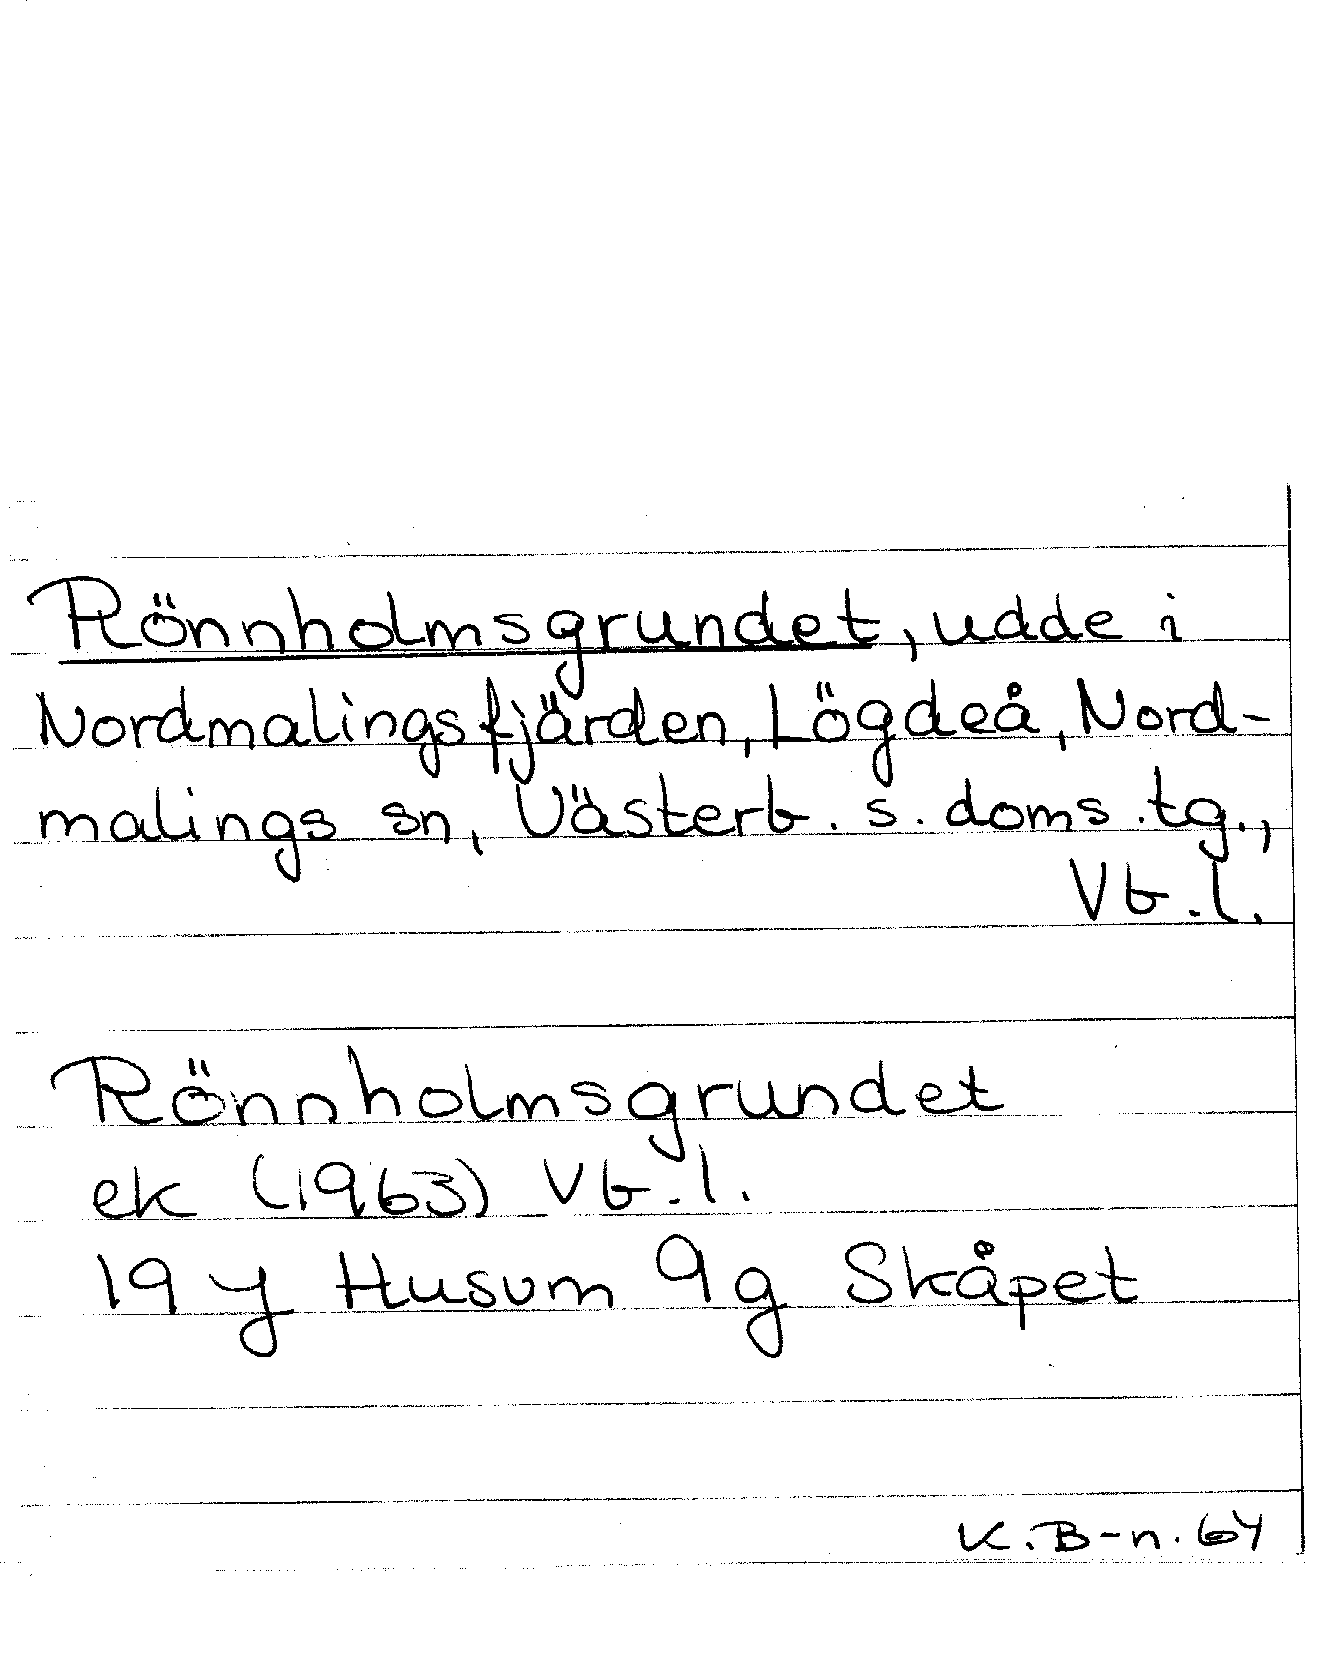 Rönnholmsgrundet, udde i
Nordmalingsfjärden, Lögdeå, Nord-
malings sn, Västerb. s. doms. tg.,
Vb.l.
Rönnholmsgrundet
ek (1963) Vb.l.
19 y Husum 9g Skåpet
K.B-n. 64